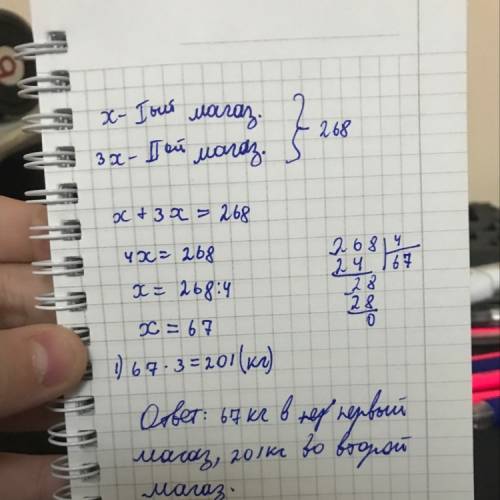 x - Iый магаз.
3x - IIой магаз.
} 268
x + 3x = 268
4x = 268
x = 268:4
x = 67
1) 67 · 3 = 201 (кг)
268 | 4
24 | 67
28
28
0
Ответ: 67 кг в первый
магаз, 201 кг во второй
магаз.